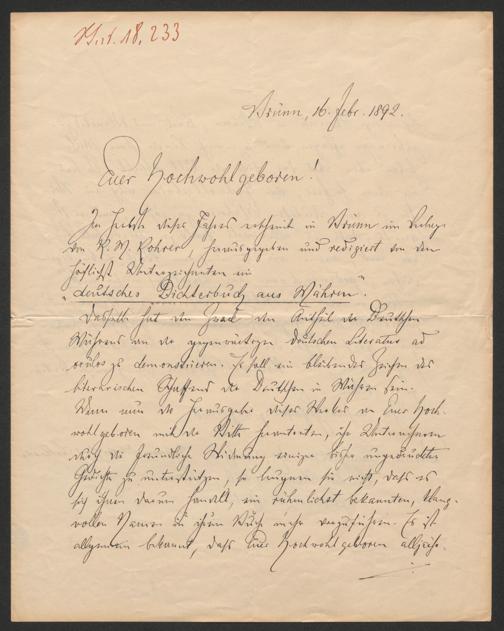 Brünn, 16. Febr. 1892.
Euer Hochwohlgeboren!
Im Herbste dieses Jahres erscheint in Brünn im Verlage
von R. M. Rohrer, herausgegeben und redigiert von den
höflichst Unterzeichneten ein
„deutsches Dichterbuch aus Mähren".
Dasselbe hat den Zweck den Antheil der Deutschen
Mährens an der gegenwärtigen deutschen Literatur ad
oculos zu demonstrieren. Es soll ein blühendes Zeichen des
literarischen Schaffens der Deutschen in Mähren sein.
Wenn nun die Herausgeber dieses Werkes an Euer Hoch-
wohlgeboren mit der Bitte herantreten, ihr Unternehmen
durch die freundliche Widmung einiger bisher ungedruckter
Gedichte zu unterstützen, so leugnen sie nicht, dass es
sich ihnen darum handelt, ein rühmlichst bekannten, klang-
vollen Namen in ihrem Buche mehr vorzuführen. Es ist
allgemein bekannt, dass Euer Hochwohlgeboren alljähr-